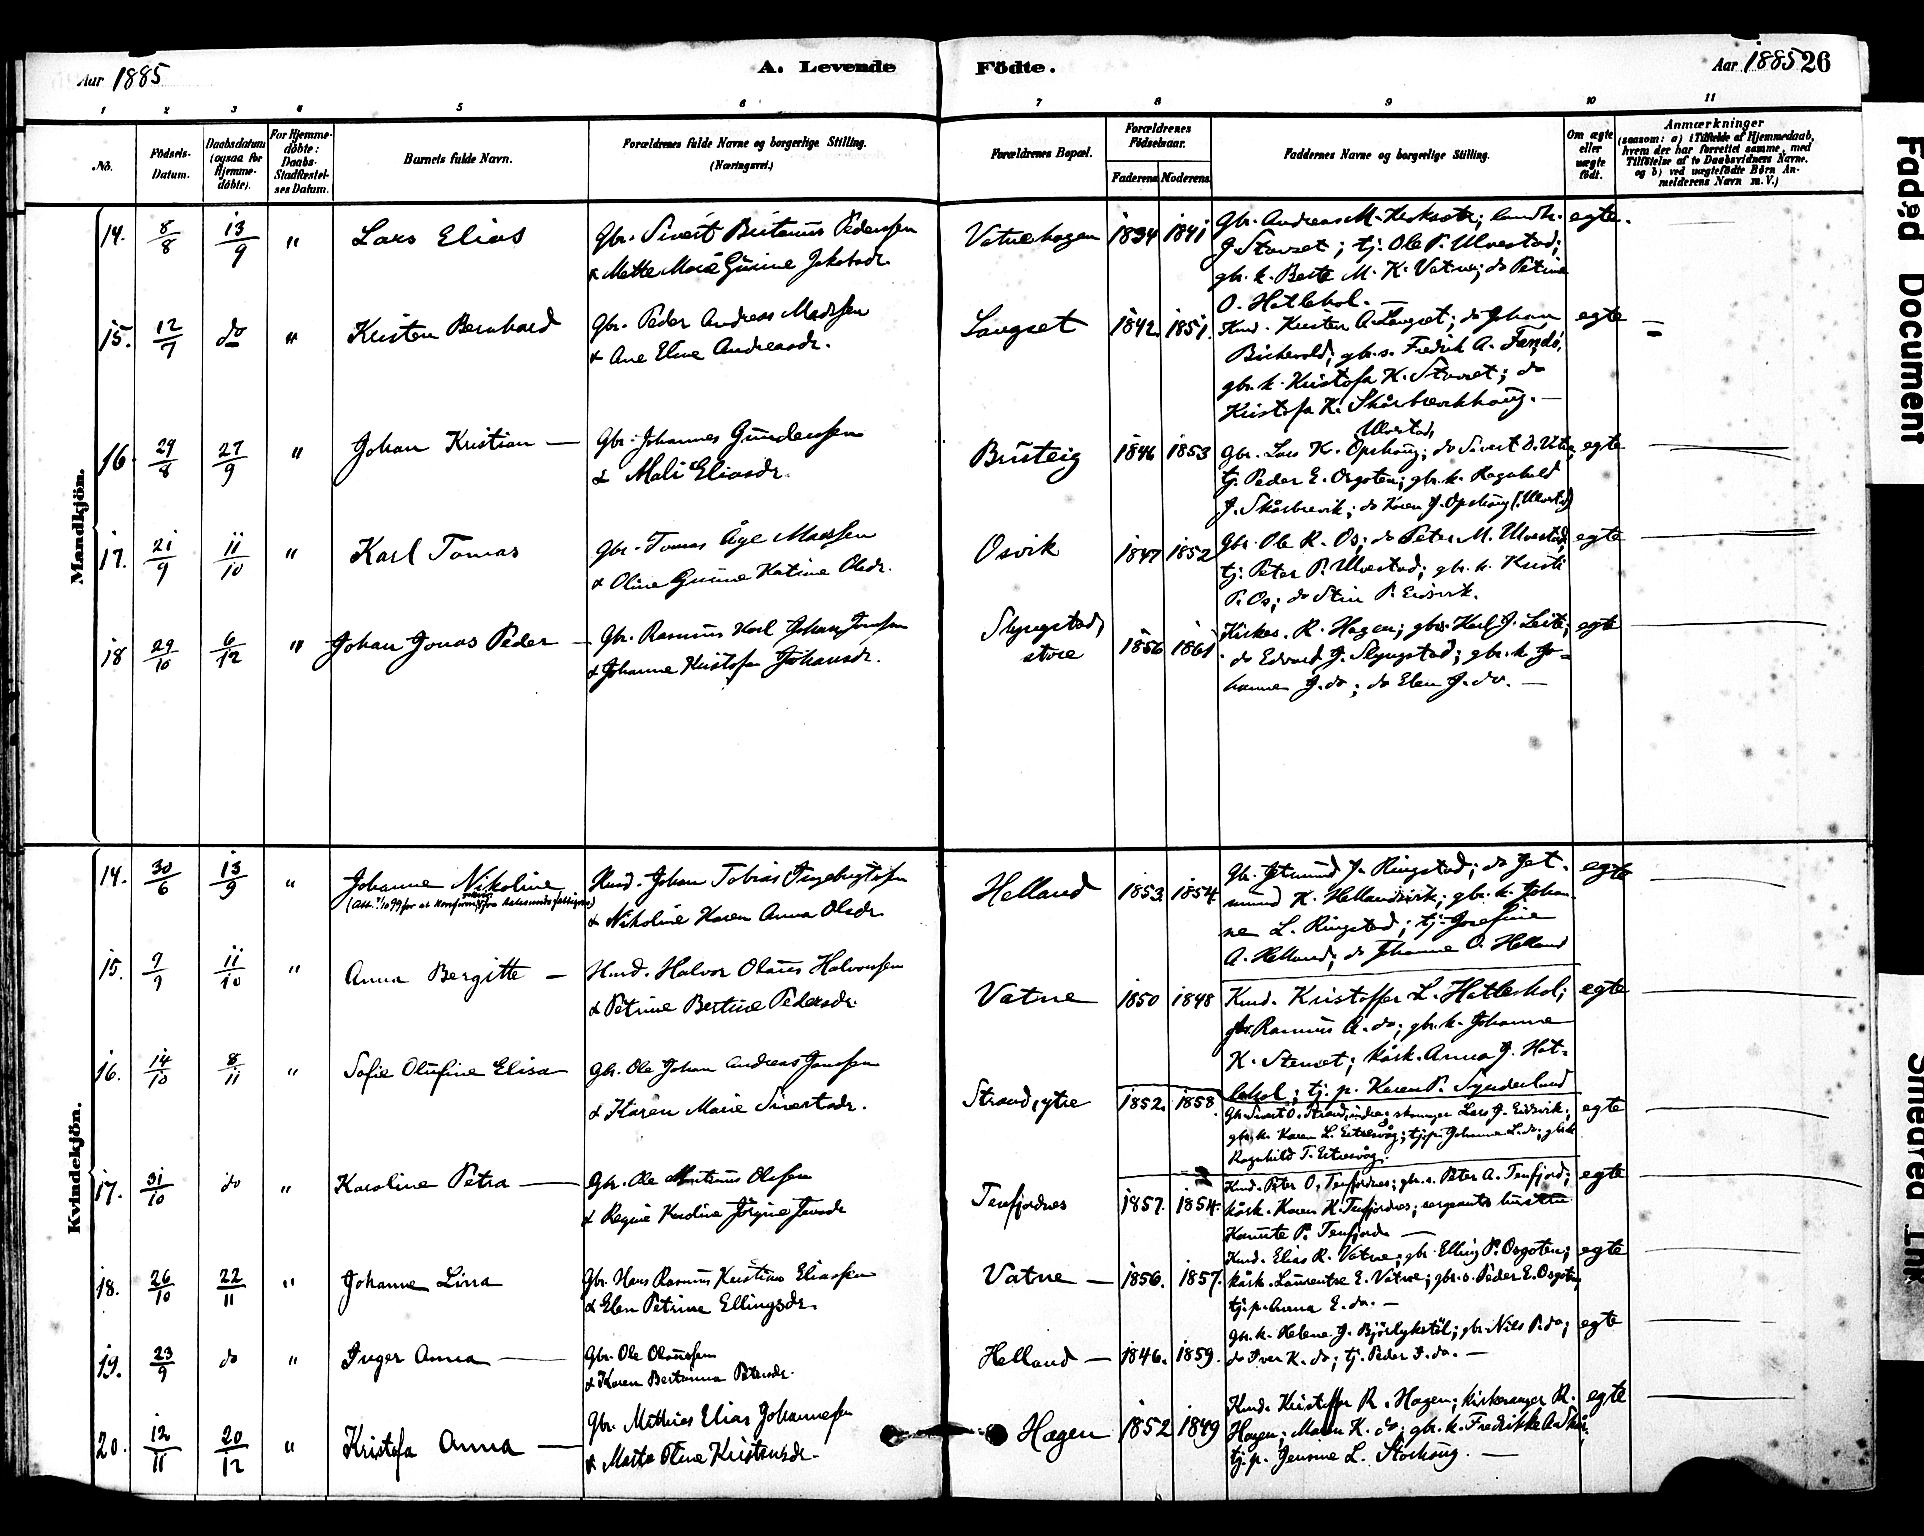 Aar 1885
A. Levende Födte.
Aar 1885 26
1 2 3 4 5 6 7 8 9 10 11
No.
Födsels-Datum.
Daabsdatum (ogsaa for Hjemme-döbte).
For Hjemme-döbte: Daabs-Stadfæstel-ses Datum.
Barnets fulde Navn.
Forældrenes fulde Navne og borgerlige Stilling.
(Næringsvei.)
Forældrenes Bopæl.
Forældrenes Födselsaar.
Faderens Moderens
Faddernes Navne og borgerlige Stilling.
Om ægte eller uægte födt.
Anmærkninger
(saasom: a) i Tilfælde af Hjemmedaab,
hvem der har forrettet samme, med
Tilföielse af to Daabsvidners Navne.
og b) ved uægtefödte Börn An-
melderens Navn m. V.)
Mandkjön.
14. 8/8 13/9 " Lars Elias
Gbr. Sivert Pedersen
& Mette Marie Gurine Jakobsdr.
Vatnehagen 1834 1841
Gbr. Andreas M. ; landh.
J. Stavset; tj. Ole P. Ulvestad;
gbr. k. Berte M. K. Vatne; do Petrine
O. Hatlehol. —
egte.
15. 12/7 do " Kristen Bernhard
Gbr. Peder Andreas Madssen
& Ane Eline Andreasdr.
Langset 1842. 1851.
Kmd. Kristen A. Langset; do Johan
gbr. s. Fredrik A.
gbr. k. Kristofa K. Stavset; do
Kristofa K. Skårbrevikhaug. —
egte
16. 29/8 27/9 " Johan Kristian —
Gbr. Johannes Gundersen
& Mali Eliasdr.
Brusteig 1846 1853
Ulvestad,
Gbr. Lars K. Opshaug; do Sivert
tj. Peder E. Orgoten; gbr. k. Ragnhild
J. Skårbrevik; do Karen J. Opshaug (Ulvestad)
egte
17. 21/9 11/10 " Karl Tomas
Gbr. Tomas Åge Madssen
& Oline Gurine Katine Olsdr.
Osvik 1847 1852
Gbr. Ole K. Os; do Peter M. Ulvestad;
tj. Peter P. Ulvestad; gbr. k. Kirsti
P. Os; do Stin P. Eidsvik.
egte
18 29/10 6/12 " Johan Jonas Peder —
Gbr. Rasmus Karl Johan Jensen
& Johanne Kristofa Johansdr.
Slyngstad, store 1856 1861
Kirkes. R. Hagen; gbr. Karl J. Leite;
do Edvard J. Slyngstad; gbr. k. Jo-
hanne J. do; do Elen J. do. —
egte
Kvindekjön.
14. 30/6 13/9 " Johanne Nikoline
Kmd. Johan Tobias Ingebrigtsen
& Nikoline Karen Anna Olsdr.
Helland 1853. 1854.
Gbr. Jetmund J. Ringstad; do Jet-
mund K. Hellandsvik; gbr. k. Johan-
ne L. Ringstad; tj. Josefine
A. Helland; do Johanne O. Helland
egte
15. 9/9 11/10 " Anna Bergitte —
Kmd. Halvor Olaus Halvorsen
& Petrine Bertine Pedersdr.
Vatne 1850 1848
Kmd. Kristoffer L. Hatlehol;
gbr. Rasmus A. do; gbr. k. Johanne
K. Stavset; kårk. Anna J. Hat-
lehol; tj. p. Karen P. Synderland
egte
16. 14/10 8/11 " Sofie Olufine Elisa —
Gbr. Ole Johan Andreas Jonssen
& Karen Marie Sivertsdr.
Strand, ytre 1852. 1858.
Gbr. Sivert O. Strand, indre; Lars J. Eidsvik;
gbr. k. Karen L. Eitresvåg; tj. p. Johanne L. do; gbr. k.
Ragnhild T. Eitresvåg.
egte
17. 31/10 do " Karoline Petra —
Gbr. Ole Martinus Olsen
& Regine Karoline Jörgine Jonsdr.
Tenfjordnes 1857. 1854.
Kmd. Peter O. Tenfjordnes; gbr. s. Peter A. Tenfjord;
kårk. Karen K. Tenfjordnes; sergeants hustru
P. Tenfjord. —
egte
18. 26/10 22/11 " Johanne Lina
Gbr. Hans Rasmus Kristian Eliassen
& Elen Petrine Ellingsdr.
Vatne — 1856. 1857.
Kmd. Elias R. Vatne; gbr. Elling P. Orgoten;
kårk. Laurentse E. Vatne; gbr. s. Peder E. Orgoten;
tj. p. Anna E. do. —
egte
19. 23/9 do " Inger Anna —
Gbr. Ole Olaussen
& Karen Bertanna Petersdr.
Helland — 1846. 1859.
Gbr. k. Helene J. Björlykstöl; gbr. Nils P. do;
do Iver K. do; tj. Peder I. do. —
egte
20. 12/11 20/12 " Kristofa Anna —
Gbr. Mathias Elias Johannessen
& Marta Oline Kristensdr.
Hagen 1852 1849
Kmd. Kristoffer R. Hagen; kirkesanger R.
Hagen; Maren K. do; gbr. k. Fredrikke A.
tj. p. Jensine L. Storhaug. —
egte
Faded Document
Smeared Ink